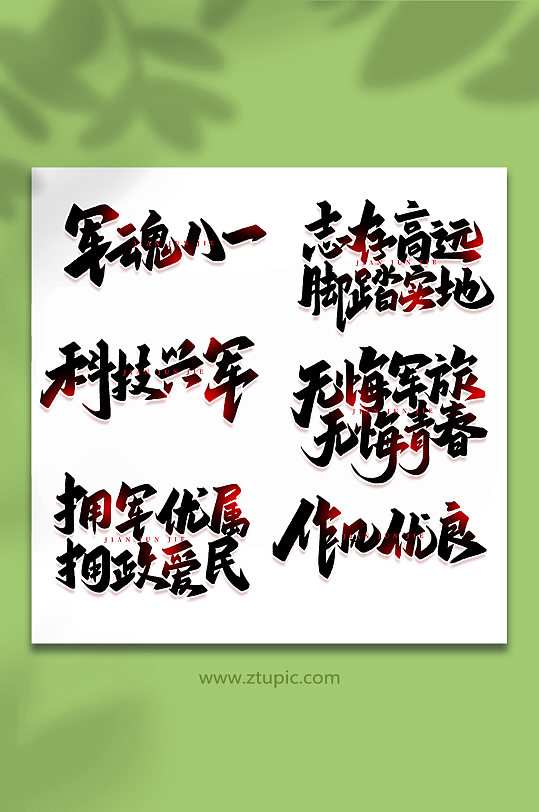 军魂八一
JIAN JUN JIE
志存高远
JIAN JUN JIE
脚踏实地
科技兴军
JIAN JUN JIE
无悔军旅
JIAN JUN JIE
无悔青春
拥军优属
JIAN JUN JIE
拥政爱民
作风优良
JIAN JUN JIE
www.ztupic.com